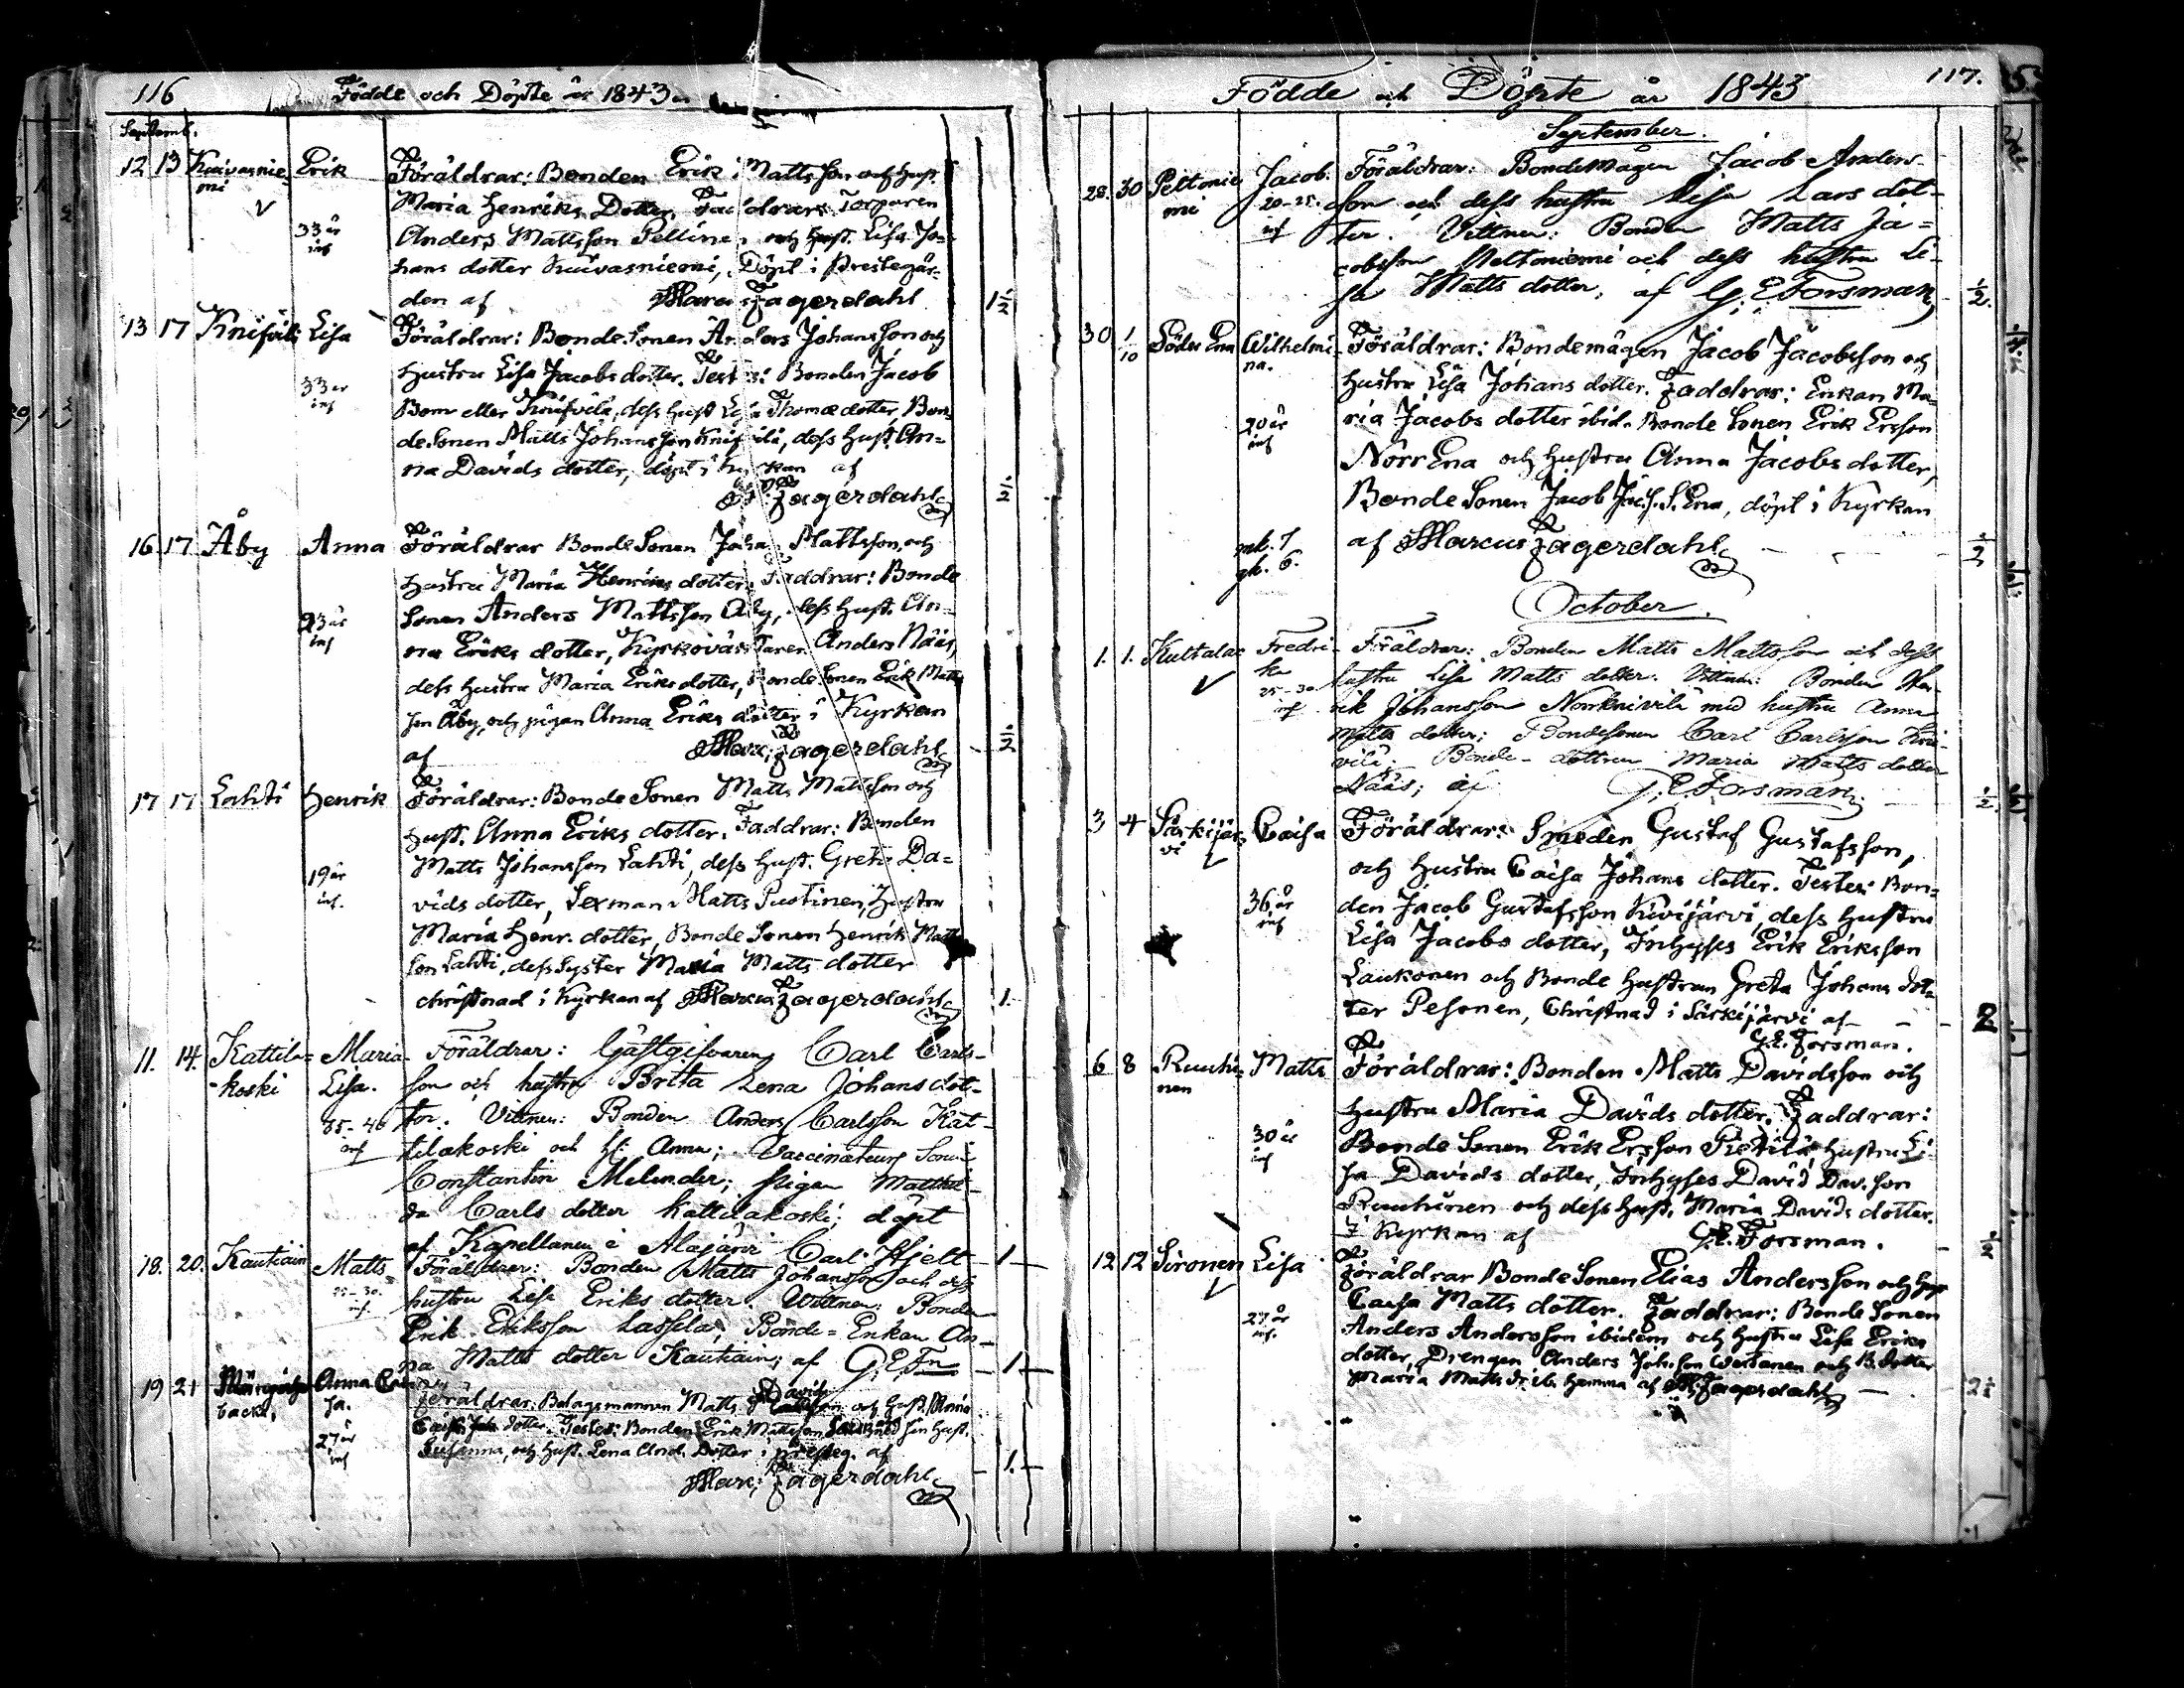 116 Födde och Döpte år 1843.
Septemb.
12 13 Kuivasnie- Erik Föräldrar: Bonden Erik Mattsson och Hust.
mi Maria Henriks Dotter, Torparen
33 år Anders Mattsson Pelline och Hust. Lisa Jo-
inf hans dotter Kuivasniemi, Döpt i Prestegår-
den af Marc. Fagerdahl 1½
13 17 Knifvilä Lisa Föräldrar: BondeSonen Anders Johansson och
Hustru Lisa Jacobs dotter. Testes: Bonden Jacob
33 år eller Knifvilä, dess Hust Thomæ dotter, Bon-
inf de Sonen Matts Johansson Knifvilä, dess Hust. An-
na Davids dotter, döpt i kyrkan af
Fagerdahl ½
16 17 Åby Anna Föräldrar BondeSonen Johan Mattsson, och
Hustru Maria Henriks dotter. Faddrar: Bonde
23 år Sonen Anders Mattsson Åby, dess Hust. An-
inf na Eriks dotter, Kyrkoväktaren Anders Nääs,
dess Hustru Maria Eriks dotter, BondeSonen Erik Matts
son Åby, och pigan Anna Eriks dotter i Kyrkan
af Marc. Fagerdahl ½
17 17 Lahti Henrik Föräldrar: BondeSonen Matts Mattsson och
Hust. Anna Eriks dotter. Faddrar: Bonden
19 år Matts Johansson Lahti, dess Hust. Greta Da-
inf. vids dotter, Sexman Matts Puotinen, Hustru
Maria Henr. dotter, BondeSonen Henrik Matts
son Lahti, dess Syster Maria Matts dotter
christnad i Kyrkan af Marcus Fagerdahl 1.
11. 14. Kattila- Maria Föräldrar: Gästgifvaren Carl Carls-
koski Lisa. son och hustru Brita Lena Johans dot-
35-40 ter. Vittnen: Bonden Anders Carlsson Kat-
inf tilakoski och H. Anna; Vaccinateurs Sonen
Constantin Melender; pigan
Carls dotter Kattilakoski; döpt
af Kapellanen i Alajärvi Carl Hjelt 1
18. 20. Kautiain Matts Föräldrar: Bonden Matts Johansson och dess
25-30. hustru Lisa Eriks dotter. Wittnen: Bonden
inf. Erik Eriksson Lassela; Bonde-Enkan An-
na Matts dotter Kautiain; af G. E. Fn 1
19 21 Anna Cai- Föräldrar: Bolagsmannen Matts Davids- och Hust. Maria
backa, sa. dotter. Testes: Bonden Erik Mattsson med sin Hust.
27 år Susanna, och Hust. Lena And. Dotter i presteg. af
inf Marc. Fagerdahl 1.
Födde och Döpte år 1843 117.
September.
28. 30 Peltonie Jacob. Föräldrar: Bondemågen Jacob Anders-
mi 20-25. son och dess hustru Lisa Lars dot-
inf ter. Vittnen: Bonden Matts Ja-
cobsson Peltoniemi och dess hustru Li-
sa Matts dotter; af G. E. Forsman ½.
30 1/10 Söder Ena Wilhelmi- Föräldrar: Bondemågen Jacob Jacobsson och
na. Hustru Lisa Johans dotter. Faddrar: Enkan Ma-
20 år ria Jacobs dotter ibid. BondeSonen Erik Ersson
inf NorrEna och Hustru Anna Jacobs dotter,
BondeSonen Jacob Jac.S. S.Ena, döpt i Kyrkan
mk. 7 af Marcus Fagerdahl ½
qk. 6.
October.
1. 1. Kultalae Fredri- Föräldrar: Bonden Matts Mattsson och dess
ka hustru Lisa Matts dotter. Vittnen: Bonden Hen-
25-30 rik Johansson Norrknivilä med hustru Anna
inf Matts dotter; Bondesonen Carl Carlsson Kni-
vilä; Bonde-dottren Maria Matts dotter
Nääs; af G. E. Forsman. ½.
3 4 Särkijär- Caisa Föräldrar: Smeden Gustaf Gustafsson,
vi och Hustru Caisa Johans dotter. Testes: Bon-
36 år den Jacob Gustafsson Kivijärvi, dess Hustru
inf Lisa Jacobs dotter, Inhyses Erik Eriksson
Laukonen och Bonde Hustrun Greta Johans dot-
ter Pesonen, Christnad i Särkijärvi af 2
G. E. Forsman.
6 8 Ruuhi- Matts Föräldrar: Bonden Matts Davidsson och
nen Hustru Maria Davids dotter. Faddrar:
30 år BondeSonen Erik Ersson Pietilä, Hustru Li-
inf sa Davids dotter, Inhyses David Dav.son
Ruuhinen och dess Hust. Maria Davids dotter.
I Kyrkan af G. E. Forsman. ½
12 12 Sironen Lisa Föräldrar BondeSonen Elias Andersson och Hust
Caisa Matts dotter. Faddrar: BondeSonen
27 år Anders Andersson ibidem och Hustru Lisa Eriks
inf. dotter, Drengen Anders Joh.son och B. dotter
Maria Matts dr ib. hemma af M. Fagerdahl 2½